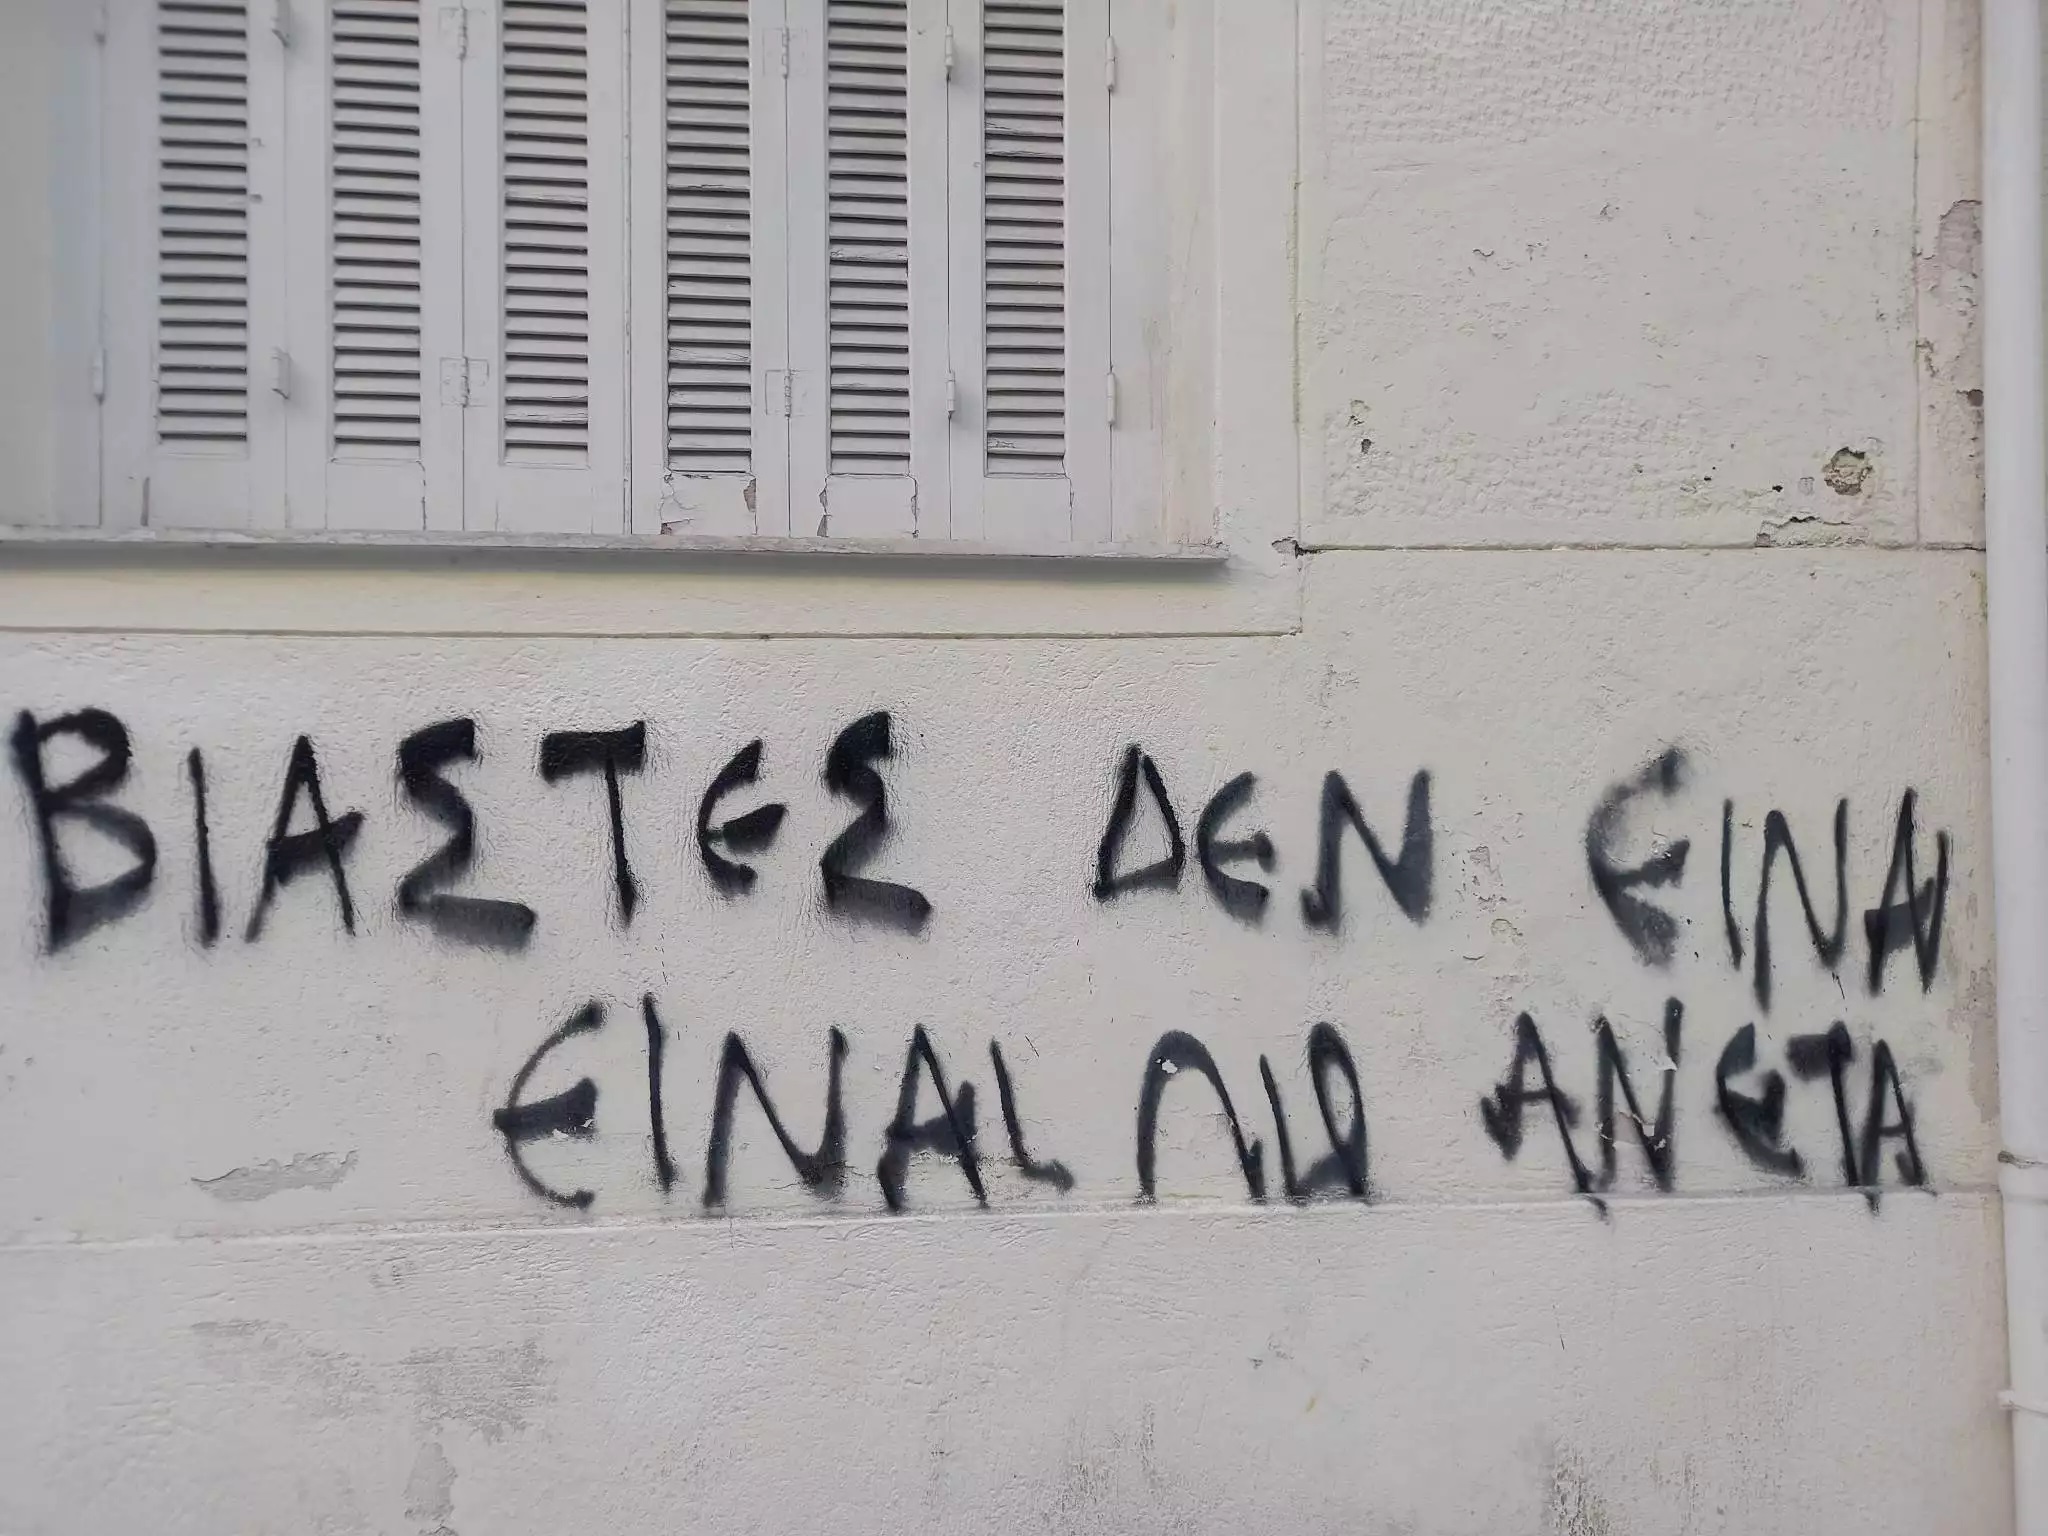 ΒΙΑΣΤΕΣ ΔΕΝ ΕΙΝΑΙ
ΕΙΝΑΙ ΠΙΟ ΑΝΕΤΑ